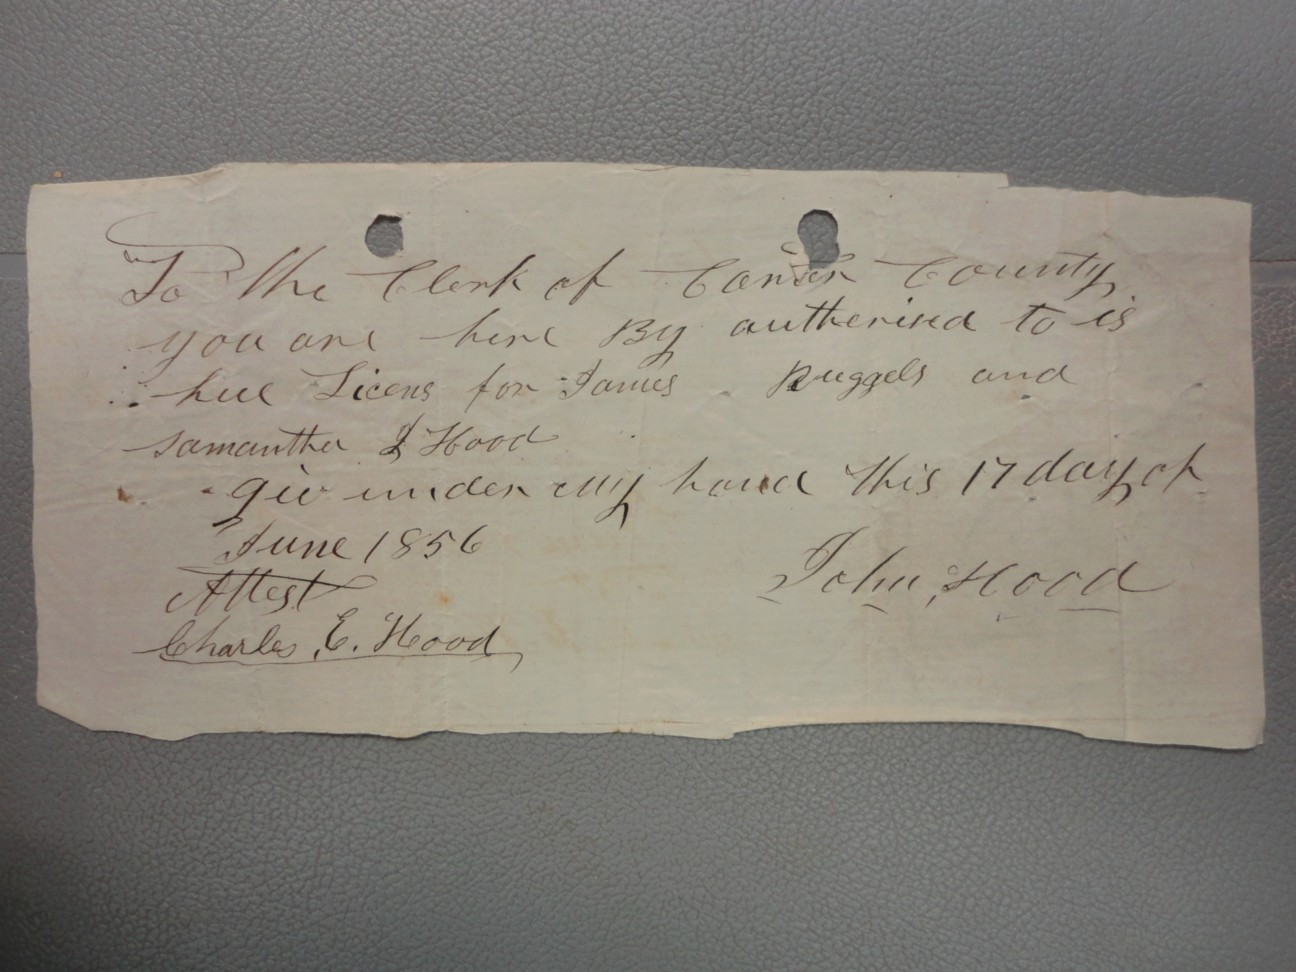 To the Clerk of Carter County
you are here By autherised to is
hue Licens for James Ruggels and
Samantha J Hood
giv under My hand this 17 day of
June 1856
Attest
John Hood
Charles E. Hood